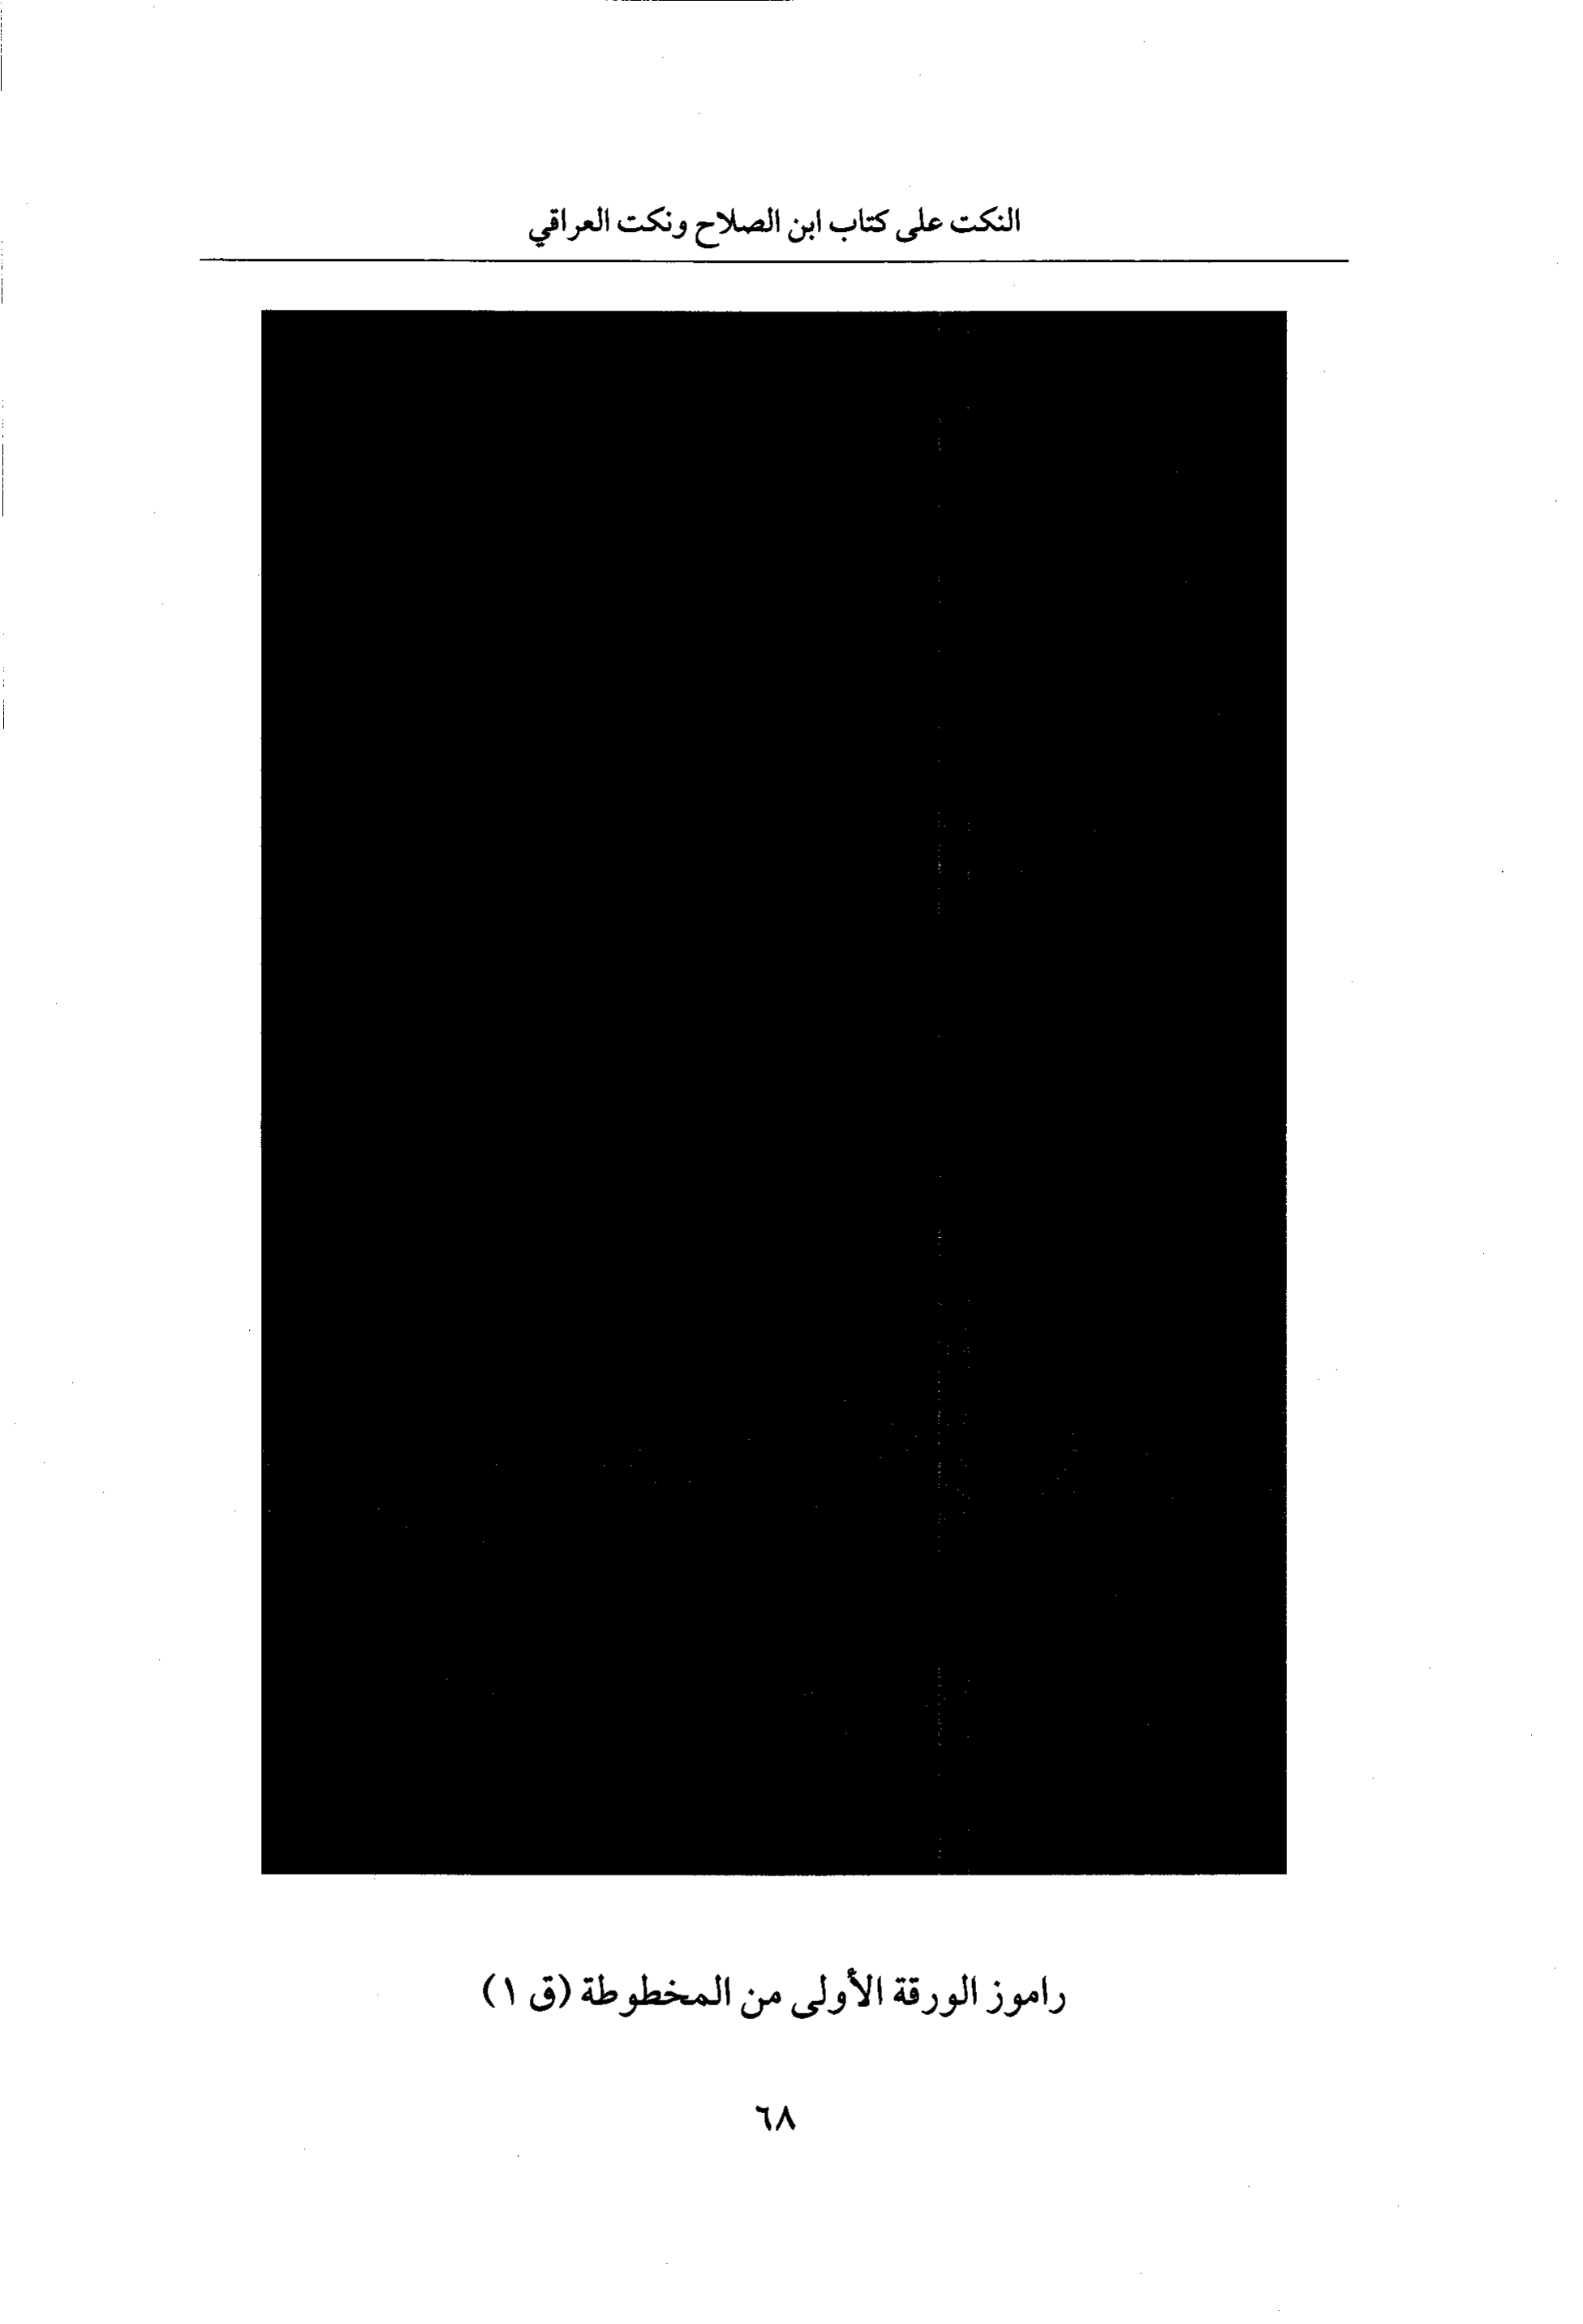 النكت على كتاب ابن الصلاح ونكت العراقي
راموز الورقة الأولى من المخطوطة (ق ١)
٦٨